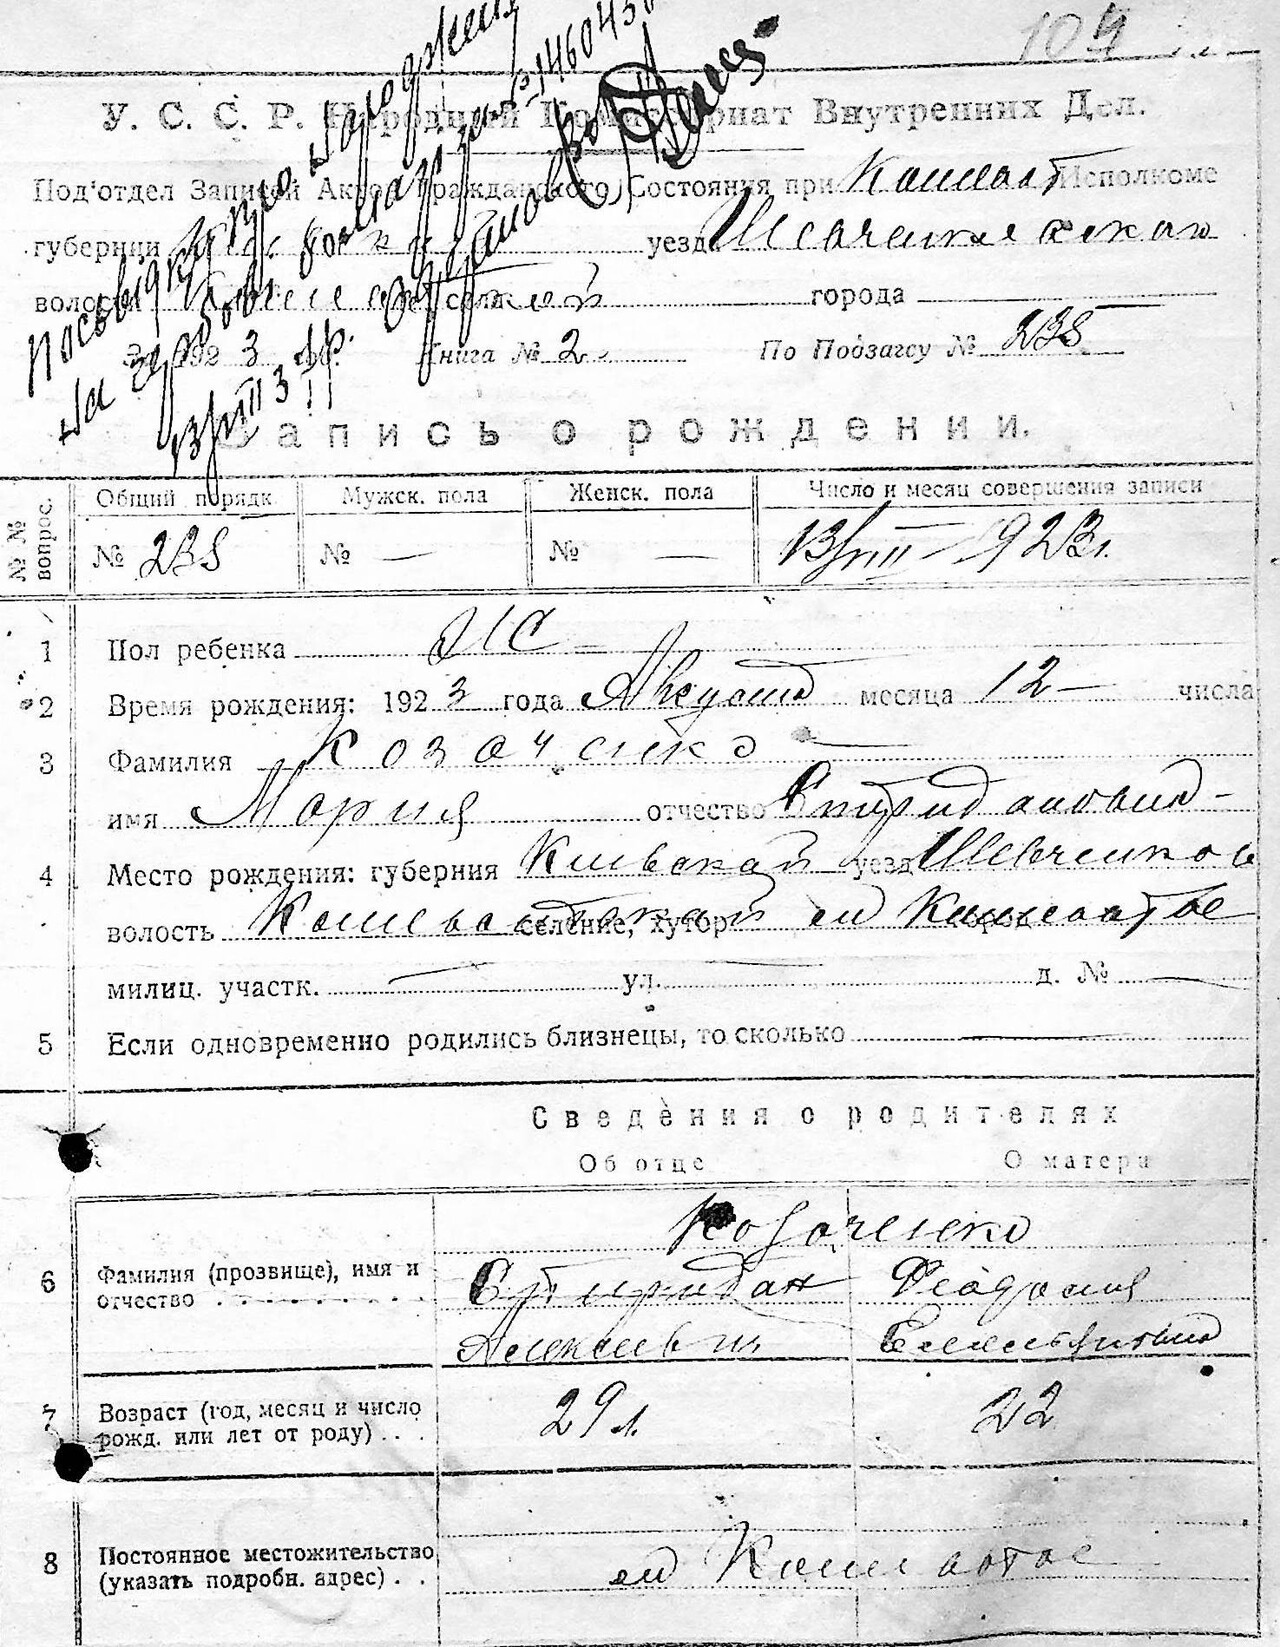 104
У. С. С. Р. Народный Комиссариат Внутренних Дел.
Под'отдел Записей Актов Гражданского Состояния при Кошеват Исполкоме
губернии уезда Шевченковском
волости Кошеватской города
192 3 Книга № 2 По Подзагсу № 238
Посвідку про народження
Запись о рождении.
№№ вопрос. Общий порядк. Мужск. пола Женск. пола Число и месяц совершения записи
№ 238 № — № — 13/VIII — 923 г.
1 Пол ребенка
2 Время рождения: 1923 года Августа месяца 12 — числа
3 Фамилия Козаченко
имя Мария отчество Спиридановна
4 Место рождения: губерния Киевской уезд Шевченков
волость Кошеватской селение, хутор город Кошеватое
милиц. участк. — ул. — д. № —
5 Если одновременно родились близнецы, то сколько —
Сведения о родителях
Об отце О матери
Козаченко
6 Фамилия (прозвище), имя и отчество . . . Спиридан Феодосия
Алексеевич Емельяновна
7 Возраст (год, месяц и число рожд. или лет от роду) . . . 29 л. 22
8 Постоянное местожительство (указать подробн. адрес) . . Кошеватое